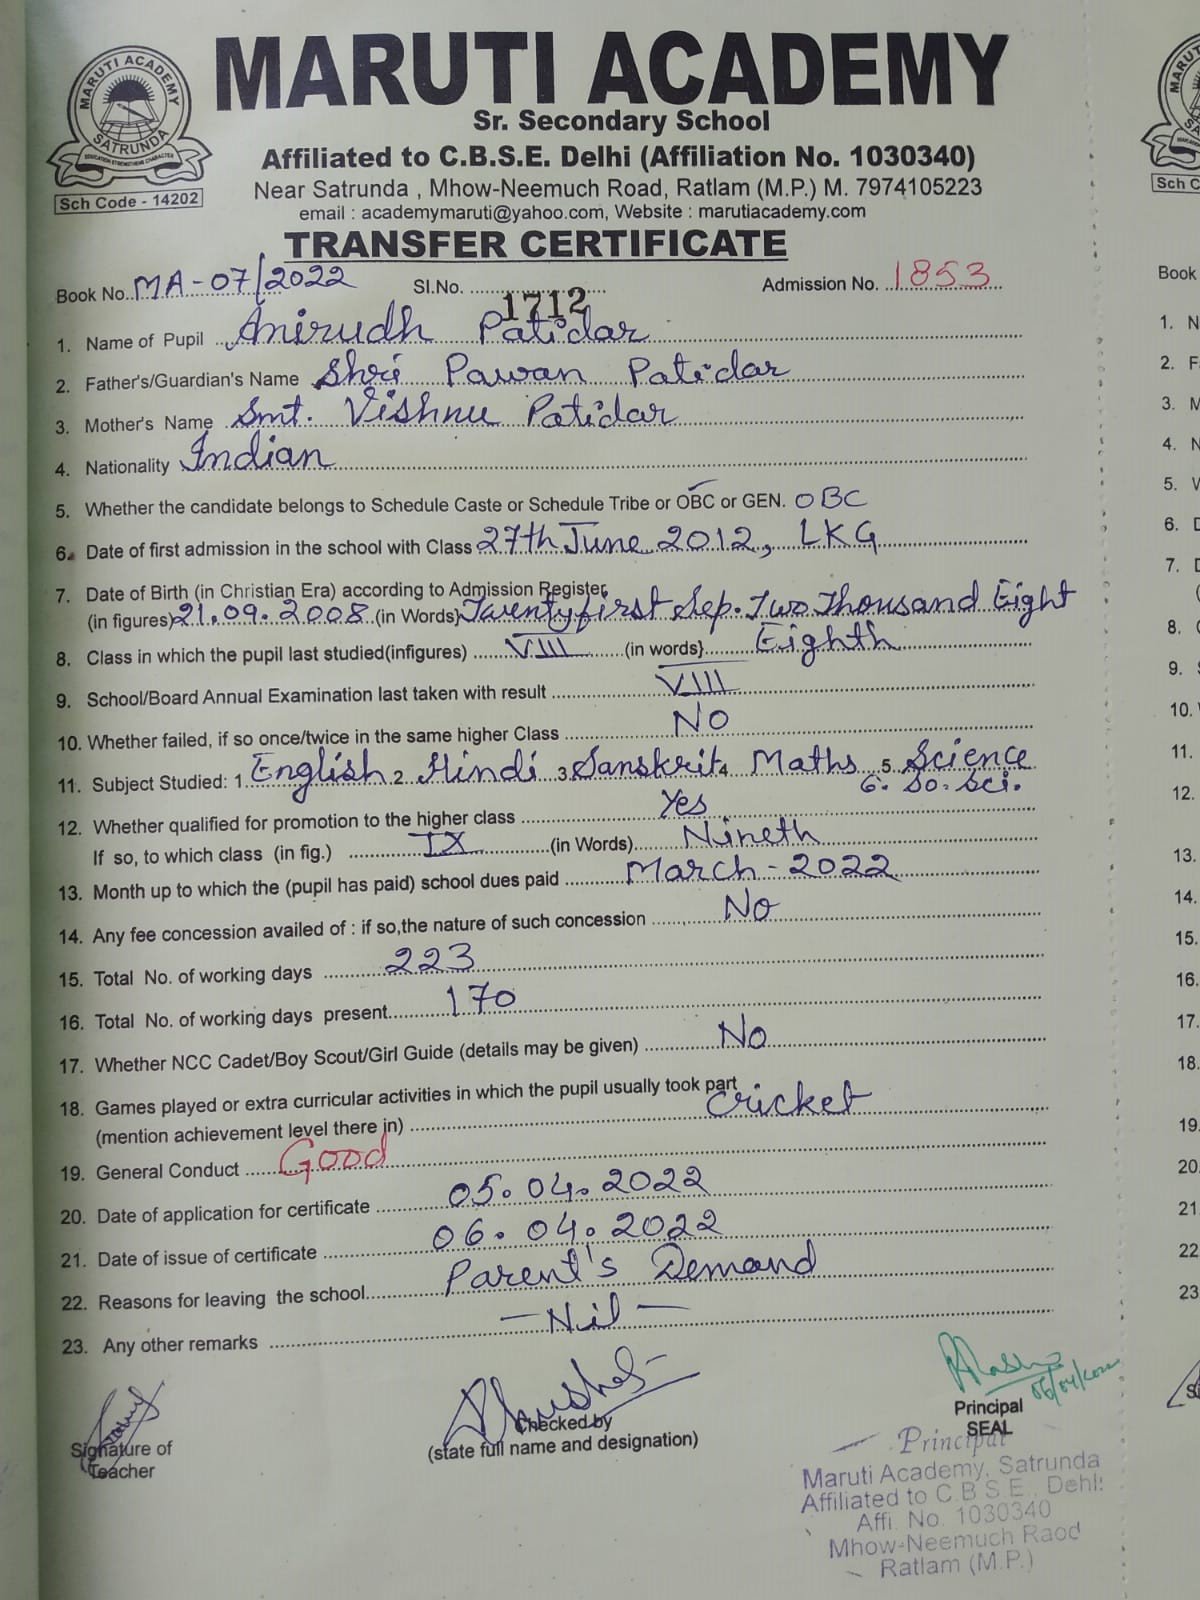 MARUTI ACADEMY
Sr. Secondary School
Affiliated to C.B.S.E. Delhi (Affiliation No. 1030340)
Near Satrunda , Mhow-Neemuch Road, Ratlam (M.P.) M. 7974105223
email : academymaruti@yahoo.com, Website : marutiacademy.com
MARUTI ACADEMY
SATRUNDA
EDUCATION STRENGTHENS CHARACTER
Sch Code - 14202
TRANSFER CERTIFICATE
Book No. MA-07/2022 Sl.No. 1712 Admission No. 1853
1. Name of Pupil Anirudh Patidar
2. Father's/Guardian's Name Shri Pawan Patidar
3. Mother's Name Smt. Vishnu Patidar
4. Nationality Indian
5. Whether the candidate belongs to Schedule Caste or Schedule Tribe or OBC or GEN. OBC
6. Date of first admission in the school with Class 27th June 2012, LKG
7. Date of Birth (in Christian Era) according to Admission Register,
(in figures) 21.09.2008 (in Words} Twentyfirst Sep. Two Thousand Eight
8. Class in which the pupil last studied(infigures) VIII (in words} Eighth
9. School/Board Annual Examination last taken with result VIII
10. Whether failed, if so once/twice in the same higher Class No
11. Subject Studied: 1. English 2. Hindi 3. Sanskrit 4 Maths 5. Science
6. So. Sci.
12. Whether qualified for promotion to the higher class Yes
If so, to which class (in fig.) IX (in Words) Nineth
13. Month up to which the (pupil has paid) school dues paid March-2022
14. Any fee concession availed of : if so,the nature of such concession No
15. Total No. of working days 223
16. Total No. of working days present 170
17. Whether NCC Cadet/Boy Scout/Girl Guide (details may be given) No
18. Games played or extra curricular activities in which the pupil usually took part
(mention achievement level there in) Cricket
19. General Conduct Good
20. Date of application for certificate 05.04.2022
21. Date of issue of certificate 06.04.2022
22. Reasons for leaving the school Parent's Demand
23. Any other remarks -Nil-
06/04/2022
Signature of
Teacher
Checked by
(state full name and designation)
Principal
SEAL
Principal
Maruti Academy, Satrunda
Affiliated to C.B.S.E., Dehli
Affi. No. 1030340
Mhow-Neemuch Raod
Ratlam (M.P.)
Sch C
Book
1. N
2. F
3. M
4. N
5. V
6. D
7. D
8.
9.
10.
11.
12.
13.
14.
15.
16.
17.
18.
19.
20.
21.
22
23